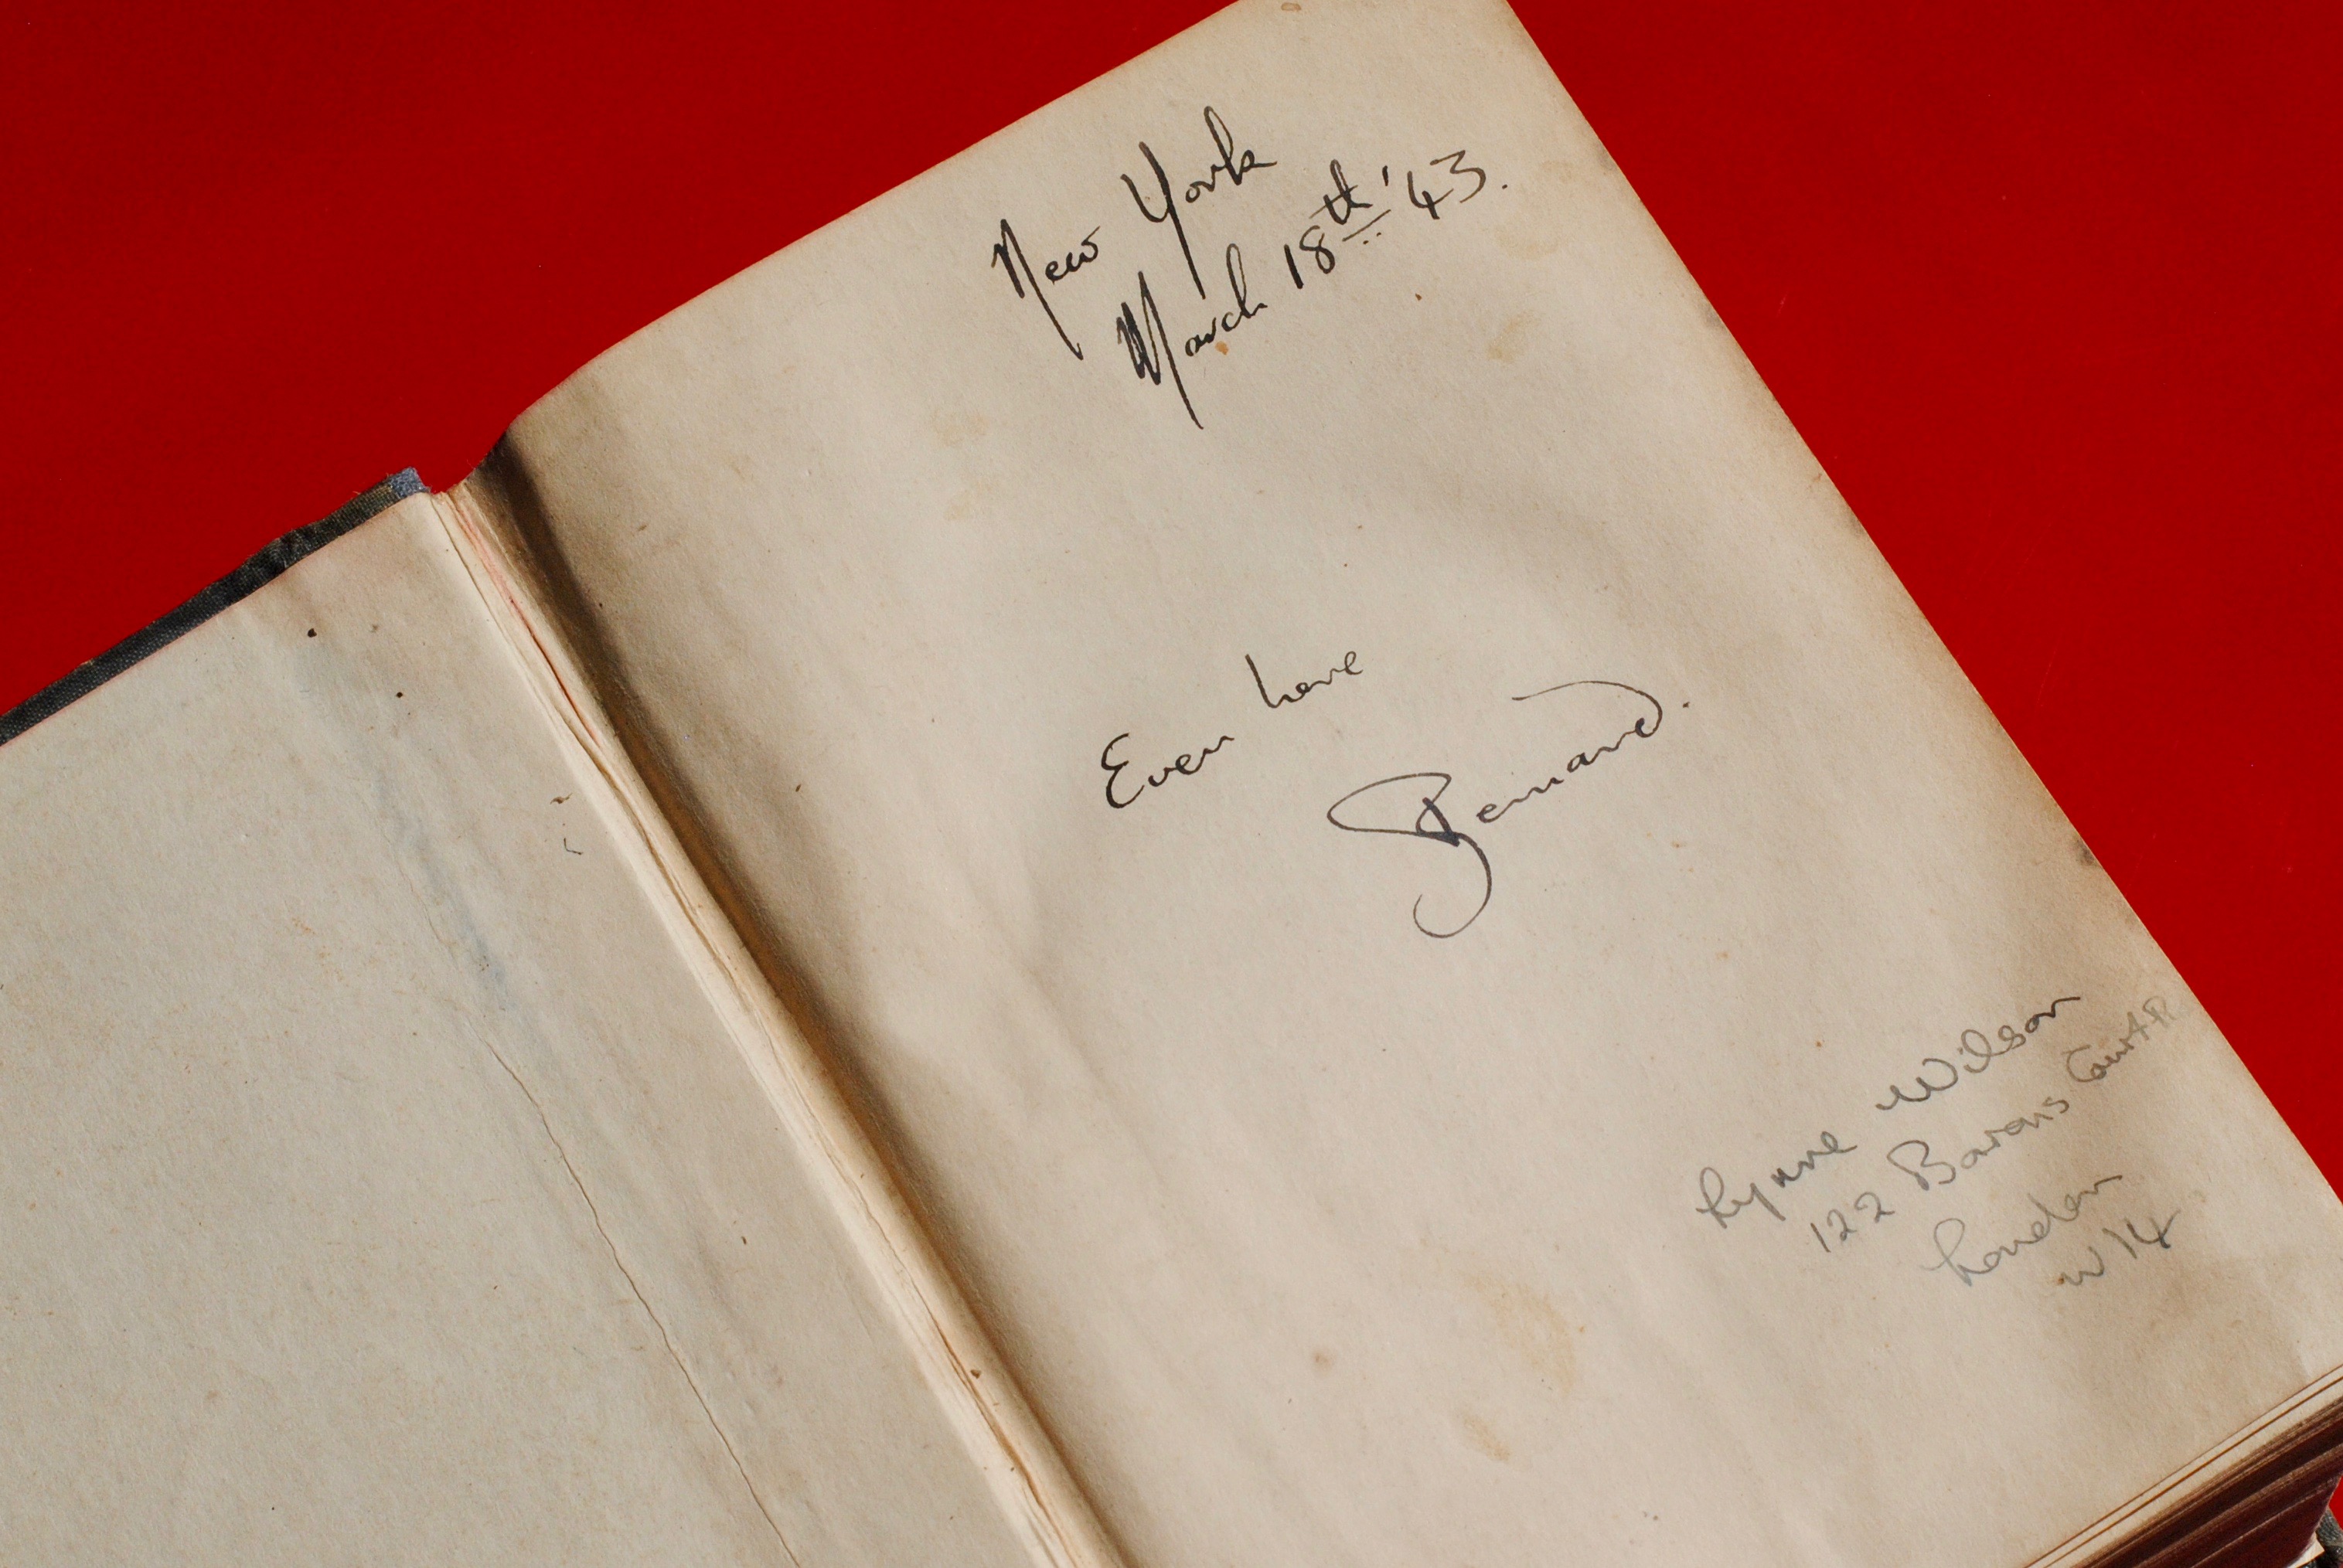 New York
March 18th '43.
Even here
Bernard.
Lynne Wilson
122 Barons Court R
London
W14